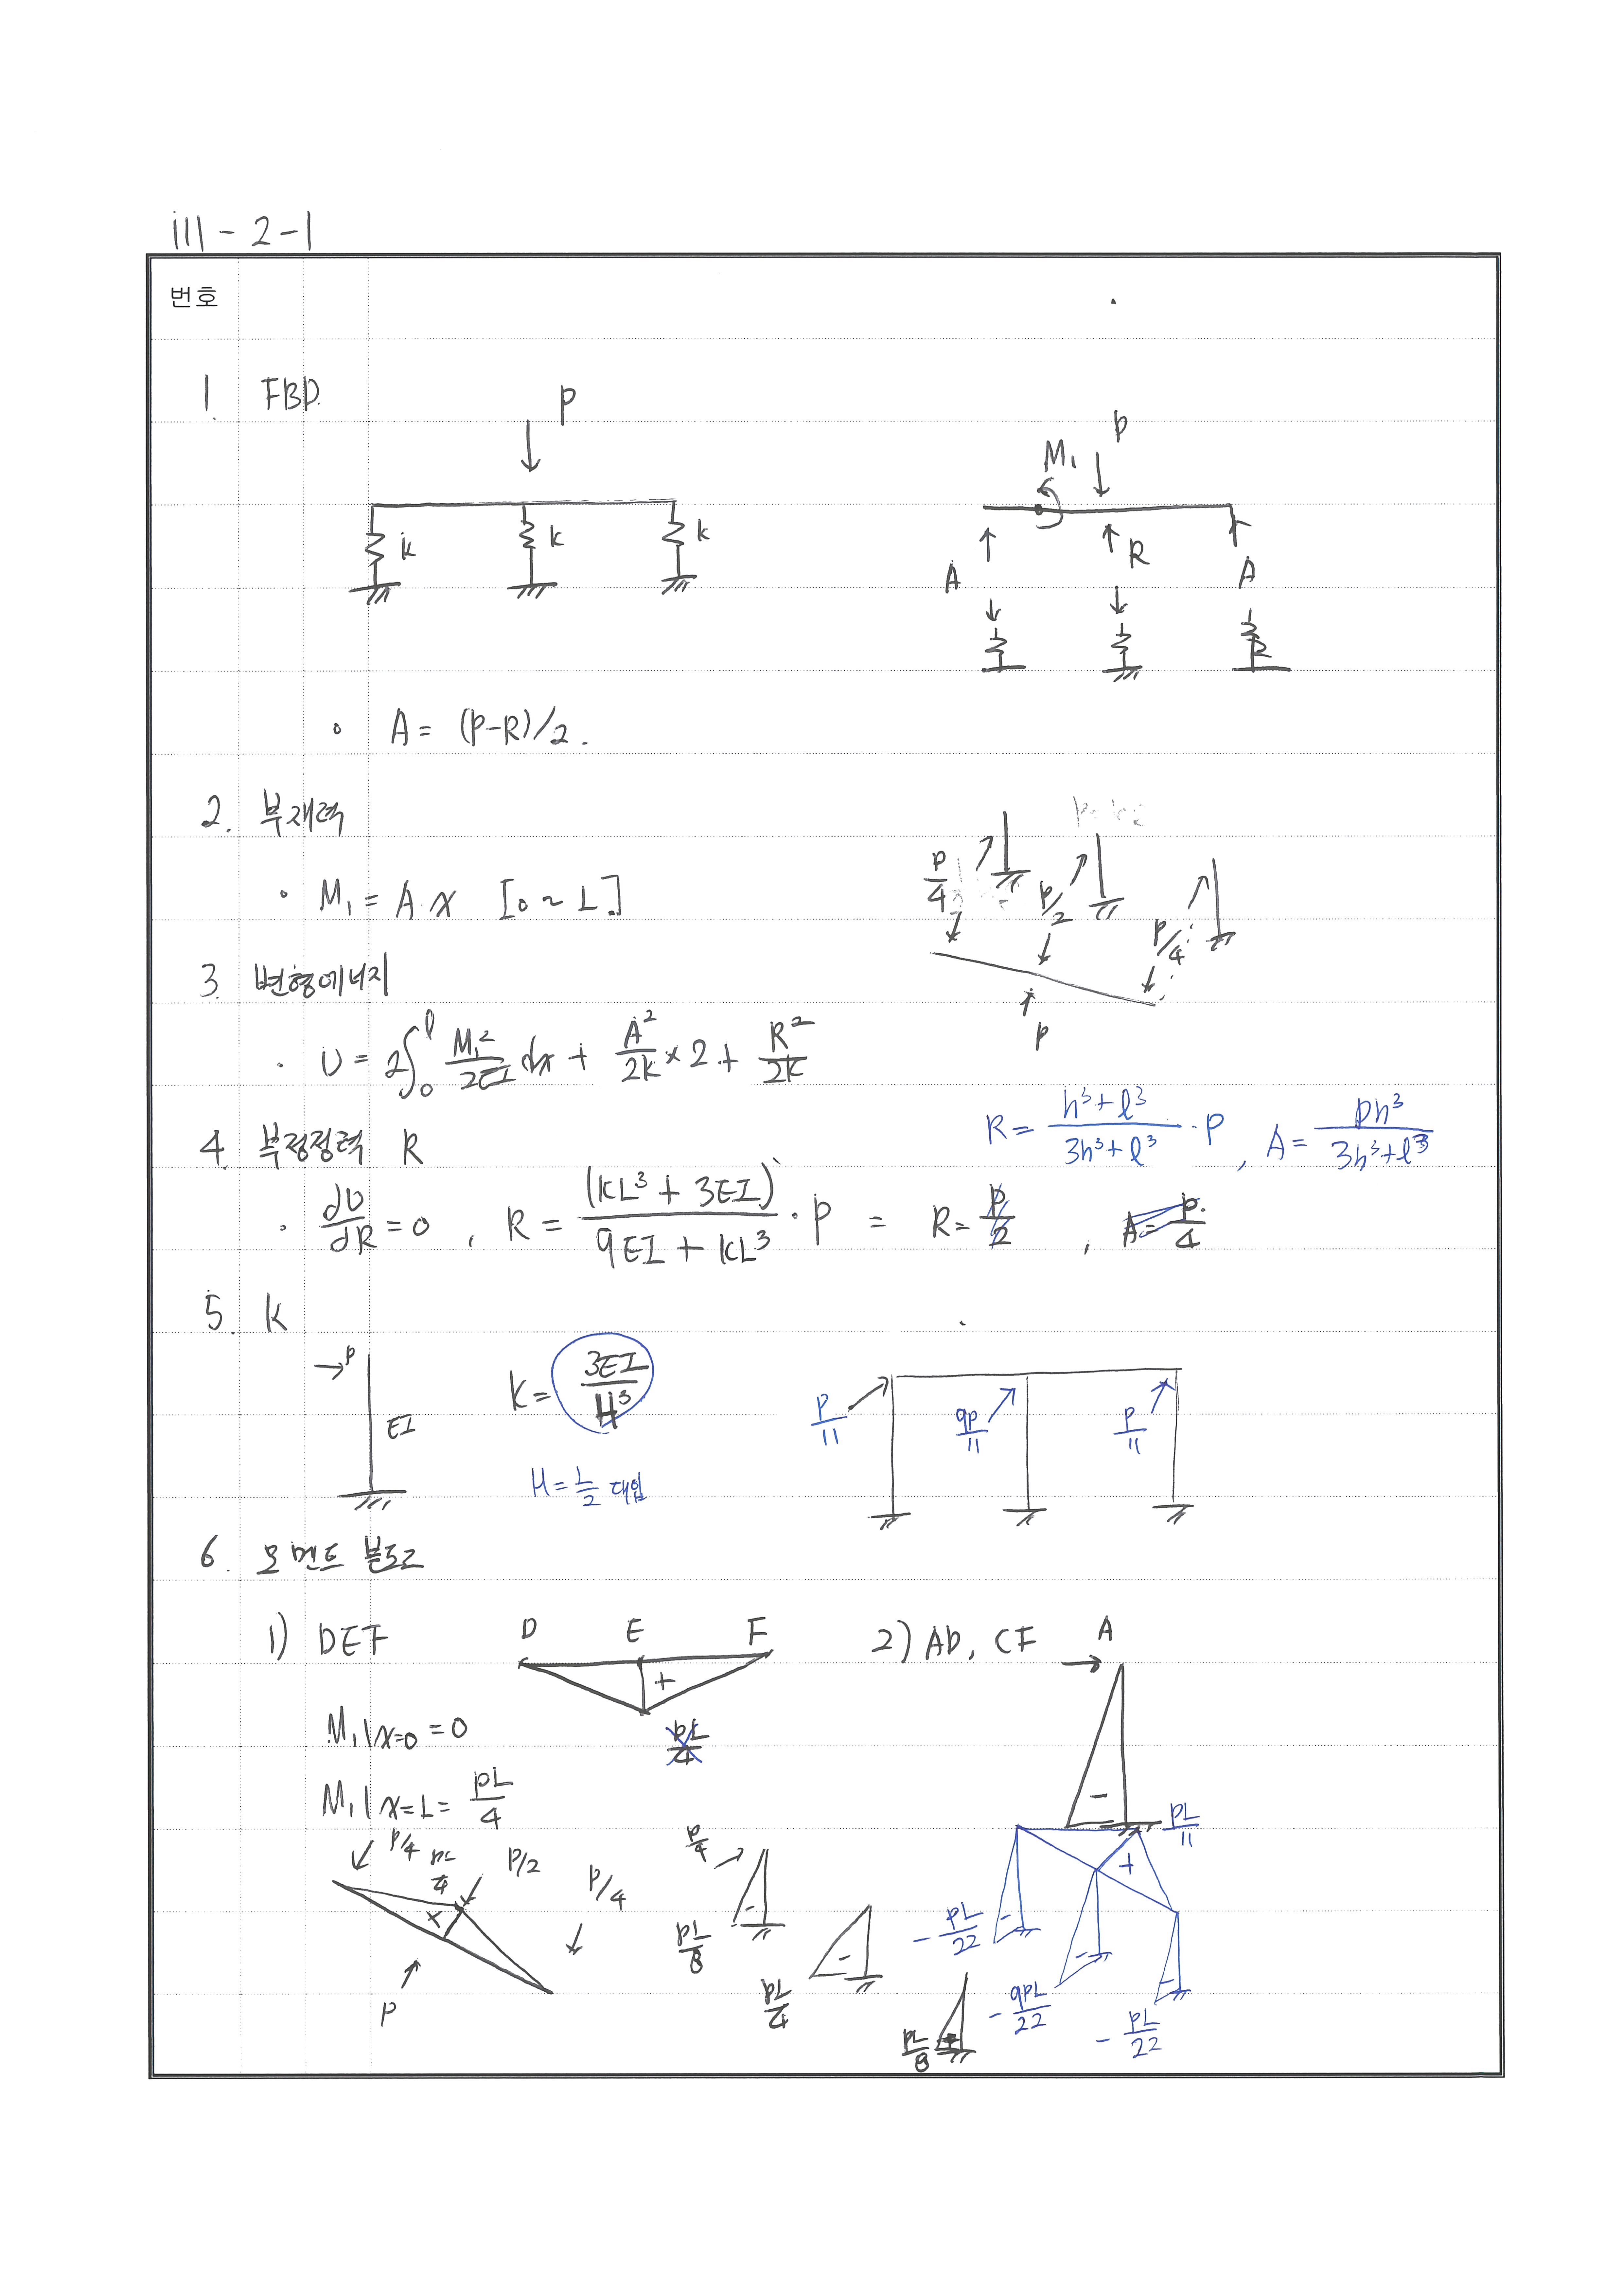 111-2-1
번호
1. FBD
P
k k k
M₁ P
A R A
∘ A = (P-R)/2.
2. 부재력
∘ M₁ = A x [0 ~ L]
P/4 P/2 P/4
P
3. 변형에너지
∘ U = 2∫₀ˡ M₁²/2EI dx + A²/2k × 2 + R²/2k
R = (h³+l³)/(3h³+l³) · P , A = Ph³/(3h³+l³)
4. 부정정력 R
∘ dU/dR = 0 , R = (kL³ + 3EI)/(9EI + kL³) · P = R = P/2 , A = P/4
5. k
P
EI
k = 3EI/H³
H = L/2 대입
P/11 9P/11 P/11
6. 모멘트 분포
1) DEF D E F
+
PL/4
2) AD, CF A
-
PL/11
M₁|x=0 = 0
M₁|x=L = PL/4
P/4 PL/4 P/2 P/4
P
P/4
- PL/8
- PL/4
PL/8
+
- PL/22
- 9PL/22
- PL/22